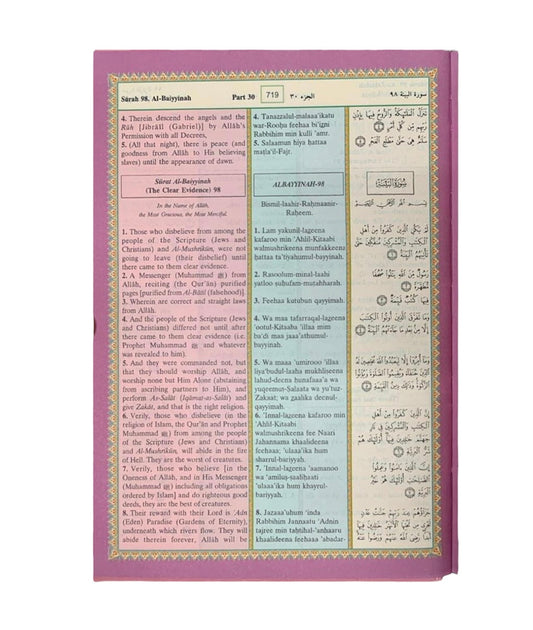 Sûrah 98. Al-Baiyyinah
Part 30
719
الجزء ٣٠
سورة البينة ٩٨
4. Therein descend the angels and the
Rûh [Jibrâîl (Gabriel)] by Allâh's
Permission with all Decrees,
5. (All that night), there is peace (and
goodness from Allâh to His believing
slaves) until the appearance of dawn.
Sûrat Al-Baiyyinah
(The Clear Evidence) 98
In the Name of Allâh,
the Most Gracious, the Most Merciful.
1. Those who disbelieve from among the
people of the Scripture (Jews and
Christians) and Al-Mushrikûn, were not
going to leave (their disbelief) until
there came to them clear evidence.
2. A Messenger (Muhammad ﷺ) from
Allâh, reciting (the Qur'ân) purified
pages [purified from Al-Bâtil (falsehood)].
3. Wherein are correct and straight laws
from Allâh.
4. And the people of the Scripture (Jews
and Christians) differed not until after
there came to them clear evidence (i.e.
Prophet Muhammad ﷺ and whatever
was revealed to him).
5. And they were commanded not, but
that they should worship Allâh, and
worship none but Him Alone (abstaining
from ascribing partners to Him), and
perform As-Salât (Iqâmat-as-Salât) and
give Zakât, and that is the right religion.
6. Verily, those who disbelieve (in the
religion of Islam, the Qur'ân and Prophet
Muhammad ﷺ) from among the people
of the Scripture (Jews and Christians)
and Al-Mushrikûn, will abide in the fire
of Hell. They are the worst of creatures.
7. Verily, those who believe [in the
Oneness of Allâh, and in His Messenger
(Muhammad ﷺ) including all obligations
ordered by Islam] and do righteous good
deeds, they are the best of creatures.
8. Their reward with their Lord is 'Adn
(Eden) Paradise (Gardens of Eternity),
underneath which rivers flow. They will
abide therein forever, Allâh will be
4. Tanazzalul-malaaa'ikatu
war-Roohu feehaa bi'izni
Rabbihim min kulli 'amr.
5. Salaamun hiya hattaa
matla'il-Fajr.
ALBAYYINAH-98
Bismil-laahir-Rahmaanir-
Raheem.
1. Lam yakunil-lageena
kafaroo min 'Ahlil-Kitaabi
walmushrikeena munfakkeena
hattaa ta'tiyahumul-bayyinah.
2. Rasoolum-minal-laahi
yatloo suhufam-mutahharah.
3. Feehaa kutubun qayyimah.
4. Wa maa tafarraqal-lageena
'ootul-Kitaaba 'illaa mim
ba'di maa jaaa'athumul-
bayyinah.
5. Wa maaa 'umirooo 'illaa
liya'budul-laaha mukhliseena
lahud-deena hunafaaa'a wa
yuqeemus-Salaata wa yu'tuz-
Zakaat; wa zaalika deenul-
qayyimah.
6. 'Innal-lageena kafaroo min
'Ahlil-Kitaabi
walmushrikeena fee Naari
Jahannama khaalideena
feehaa; 'ulaaa'ika hum
sharrul-bariyyah.
7. 'Innal-lageena 'aamanoo
wa 'amilus-saalihaati
'ulaaa'ika hum khayrul-
bariyyah.
8. Jazaaa'uhum 'inda
Rabbihim Jannaatu 'Adnin
tajree min tahtihal-'anhaaru
khaalideena feehaaa 'abadar-
تَنَزَّلُ الْمَلَٰئِكَةُ وَالرُّوحُ فِيهَا بِإِذْنِ
رَبِّهِم مِّن كُلِّ أَمْرٍ ٤
سَلَٰمٌ هِيَ حَتَّىٰ مَطْلَعِ الْفَجْرِ ٥
سُورَةُ الْبَيِّنَةِ
بِسْمِ اللَّهِ الرَّحْمَٰنِ الرَّحِيمِ
لَمْ يَكُنِ الَّذِينَ كَفَرُوا مِنْ أَهْلِ
الْكِتَٰبِ وَالْمُشْرِكِينَ مُنفَكِّينَ حَتَّىٰ
تَأْتِيَهُمُ الْبَيِّنَةُ ١
رَسُولٌ مِّنَ اللَّهِ يَتْلُوا صُحُفًا
مُّطَهَّرَةً ٢
فِيهَا كُتُبٌ قَيِّمَةٌ ٣
وَمَا تَفَرَّقَ الَّذِينَ أُوتُوا الْكِتَٰبَ
إِلَّا مِن بَعْدِ مَا جَاءَتْهُمُ الْبَيِّنَةُ ٤
وَمَا أُمِرُوا إِلَّا لِيَعْبُدُوا اللَّهَ مُخْلِصِينَ لَهُ
الدِّينَ حُنَفَاءَ وَيُقِيمُوا الصَّلَوٰةَ وَيُؤْتُوا
الزَّكَوٰةَ وَذَٰلِكَ دِينُ الْقَيِّمَةِ ٥
إِنَّ الَّذِينَ كَفَرُوا مِنْ أَهْلِ
الْكِتَٰبِ وَالْمُشْرِكِينَ فِي نَارِ
جَهَنَّمَ خَٰلِدِينَ فِيهَا أُولَٰئِكَ هُمْ
شَرُّ الْبَرِيَّةِ ٦
إِنَّ الَّذِينَ ءَامَنُوا وَعَمِلُوا
الصَّٰلِحَٰتِ أُولَٰئِكَ هُمْ خَيْرُ
الْبَرِيَّةِ ٧
جَزَاؤُهُمْ عِندَ رَبِّهِمْ جَنَّٰتُ عَدْنٍ
تَجْرِي مِن تَحْتِهَا الْأَنْهَٰرُ خَٰلِدِينَ
فِيهَا أَبَدًا رَّضِيَ اللَّهُ عَنْهُمْ وَرَضُوا